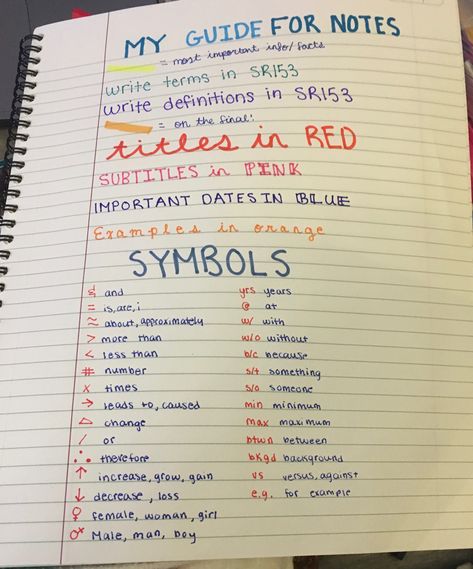 MY GUIDE FOR NOTES
= most important info/facts
write terms in SR153
write definitions in SR153
= on the final!
titles in RED
SUBTITLES in PINK
IMPORTANT DATES IN BLUE
Examples in orange
SYMBOLS
& and
= is, are, i
≈ about, approximately
> more than
< less than
# number
x times
→ leads to, caused
△ change
/ or
∴ therefore
↑ increase, grow, gain
↓ decrease, loss
♀ female, woman, girl
♂ Male, man, boy
yrs years
@ at
w/ with
w/o without
b/c because
s/t something
s/o someone
min minimum
max maximum
btwn between
bkgd background
vs versus, against
e.g. for example